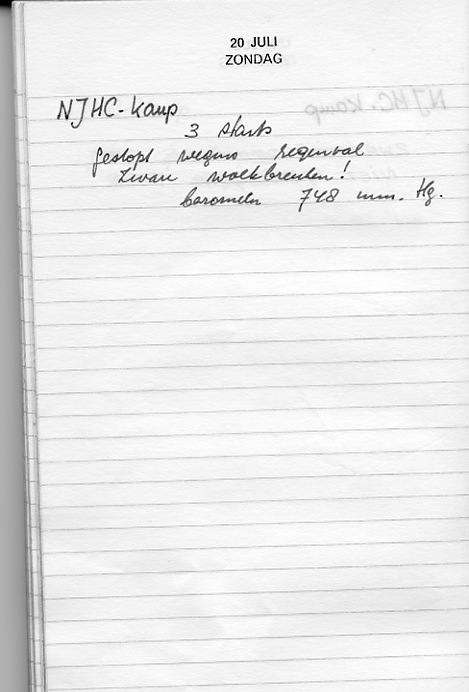 20 JULI
ZONDAG
NJHC-kamp
3 starts
gestopt wegens regenval
zware wolkbreuken!
barometer 748 mm. Hg.